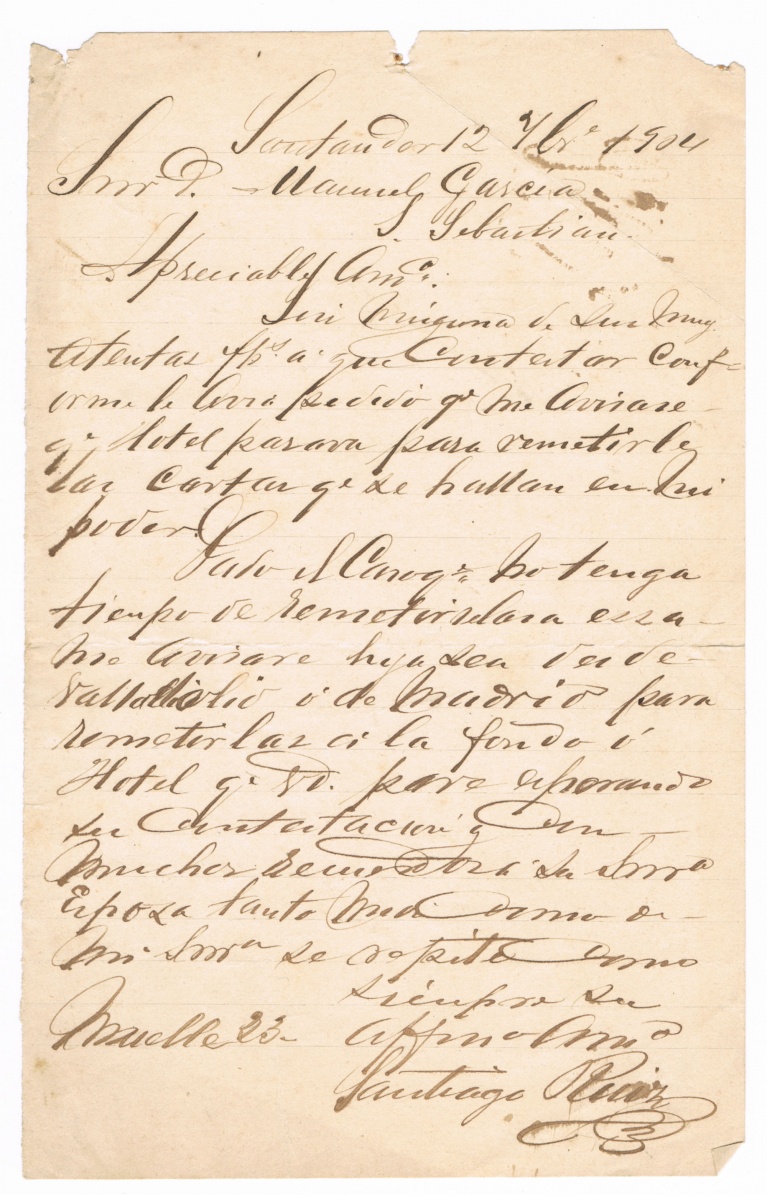 Santander 12 7bre 1904
Snr D. Manuel García
S. Sebastian.
Apreciable Amo.
Sin ninguna de sus muy
atentas a que contestar conf-
orme le avia pedido qe me avisase
qe Hotel parava para remetirle
las cartas qe se hallan en mi
poder.
Dado el Caso qe no tenga
tiempo de remetirselas a essa
me avisare ya sea desde
Valladolid ó de Madrid para
remetirlas a la fonda ó
Hotel qe Vd. pare esperando
su contestacion y con
muchos recuerdos a su Snra
Esposa tanto mios como de
mi Snra se repite como
siempre su
Muelle 23- affmo Amo
Santiago Ruiz